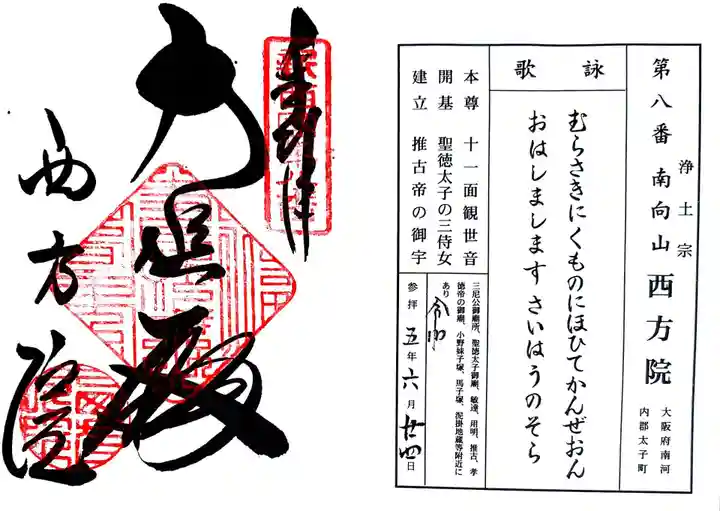 奉拝
大悲殿
西方院
第八番 南向山 西方院
浄土宗
大阪府南河
内郡太子町
詠歌
むらさきにくものにほひてかんぜおん
おはしまします さいはうのそら
本尊 十一面観世音
開基 聖徳太子の三侍女
建立 推古帝の御宇
三尼公御廟所、聖徳太子御廟、敏達、用明、推古、孝
徳帝の御廟、小野妹子塚、馬子塚、泥掛地蔵等附近に
あり
参拝 令和五年六月廿四日